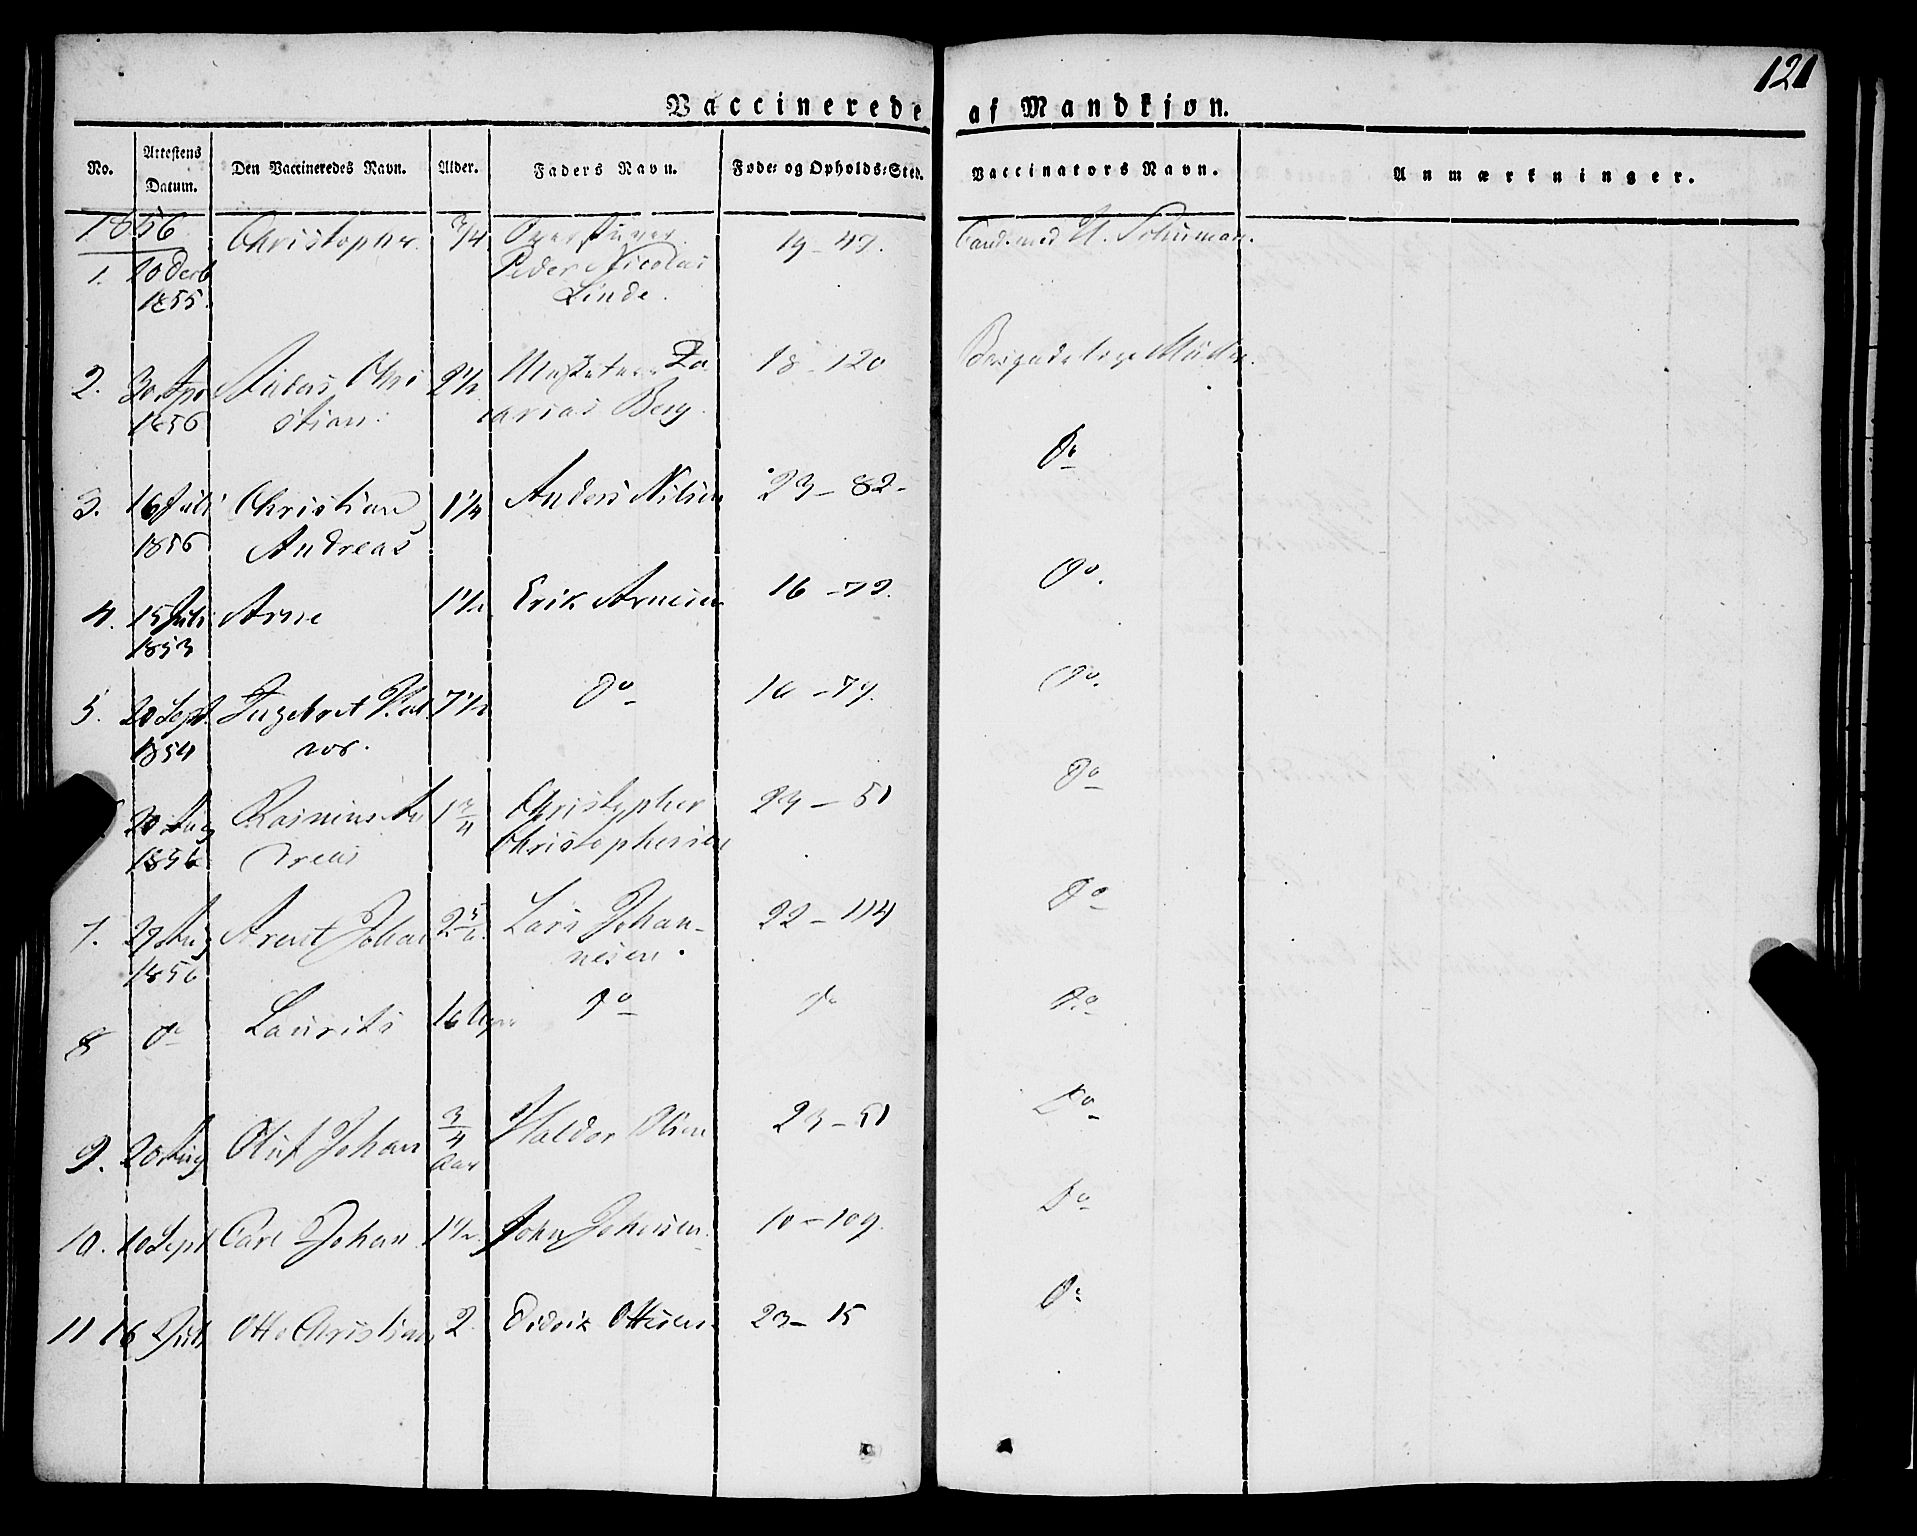 121
Vaccinerede af Mandkjøn.
No. Attestens Datum. Den Vaccineredes Navn. Alder. Faders Navn. Føde- og Opholds-Sted. Vaccinators Navn. Anmærkninger.
1856
1. 20 Decb Christopher. 3/4 19 - 47. Cand. med H. Schuman.
1855. Peder Nicolai
Linde.
2. 30 Apr Chri 2 1/2 Za 18 - 120 Müller.
1856 stian. carias Berg.
3. 16 Juli Christian 1 1/4 Anders Nilsen 23 - 82 - Do
1856 Andreas
4. 15 Juli Arne 1 1/2 Erik Arnesen 16 - 79. Do.
1853
5. 20 Sept. Ingebret 7 1/2 do 16 - 79. Do.
1854
20 Aug Rasmus An 1 3/4 Christopher 23 - 51 Do
1856 dreas Christophersen
7. 27 Aug Arent Johan 2 5/6 Lars Johan- 22 - 114 Do
1856 nesen.
8 do Laurits 16 do do Do
9. 20 Aug Oluf Johan 3/4 Haldor Olsen 23 - 51 Do
Aar
10. 10 Sept Carl Johan 1 1/2 John Johnsen. 10 - 109. Do
11 16 Juli Otto Christian 2 Didrik Ottesen. 23 - 15 Do